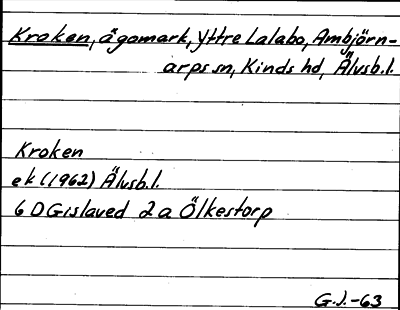 Kroken, ägomark, Yttre Lalabo, Ambjörn-
arps sn, Kinds hd, Älvsb.l.
Kroken
ek (1962) Älvsb.l.
6 D Gislaved 2 a Ölkestorp
G.J.-63